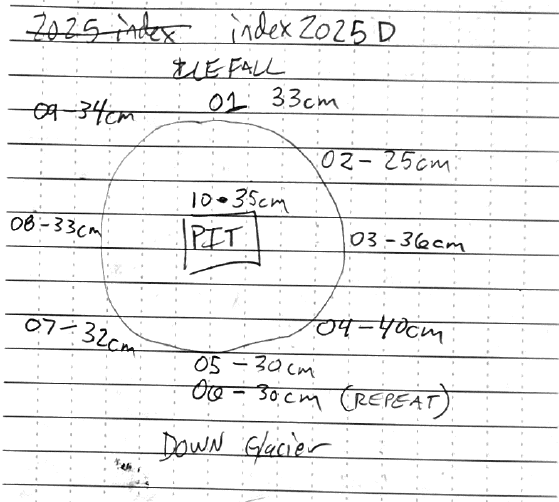 2025 index index2025D
ICEFALL
01 33cm
09-34cm
02-25cm
10-35cm
08-33cm PIT 03-36cm
07-32cm 04-40cm
05-30cm
06-30cm (REPEAT)
DOWN Glacier